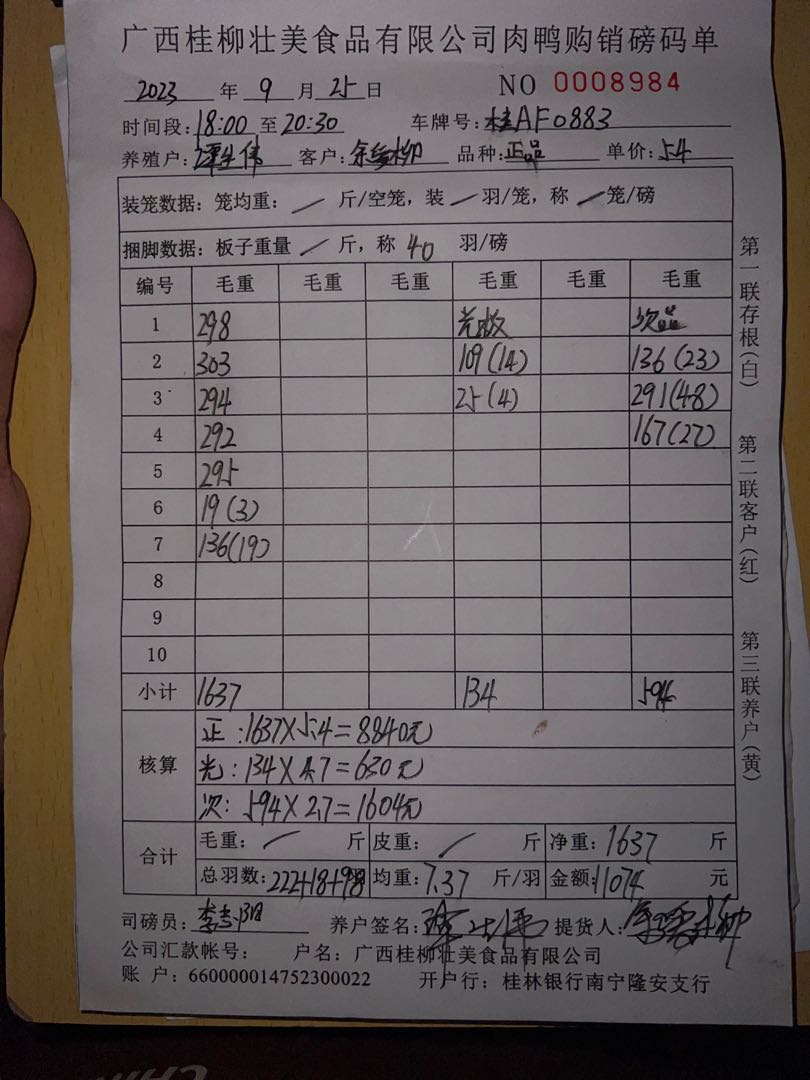 广西桂柳壮美食品有限公司肉鸭购销磅码单
2023 年 9 月 25 日 NO 0008984
时间段: 18:00 至 20:30 车牌号: 桂AF0883
养殖户: 客户: 品种: 正品 单价: 5.4
装笼数据: 笼均重: / 斤/空笼, 装 / 羽/笼, 称 / 笼/磅
捆脚数据: 板子重量 / 斤, 称 40 羽/磅
编号 毛重 毛重 毛重 毛重 毛重 毛重
1 298 次品
2 303 109(14) 136(23)
3 294 25(4) 291(48)
4 292 167(27)
5 295
6 19(3)
7 136(19)
8
9
10
小计 1637 134 594
核算
正:1637×5.4=8840元
光:134×4.7=630元
次:594×2.7=1604元
合计
毛重: / 斤 皮重: / 斤 净重: 1637 斤
总羽数: 222+18+98 均重: 7.37 斤/羽 金额: 11074 元
司磅员: 养户签名: 提货人:
公司汇款帐号: 户名: 广西桂柳壮美食品有限公司
账 户: 660000014752300022 开户行: 桂林银行南宁隆安支行
第一联存根(白)
第二联客户(红)
第三联养户(黄)